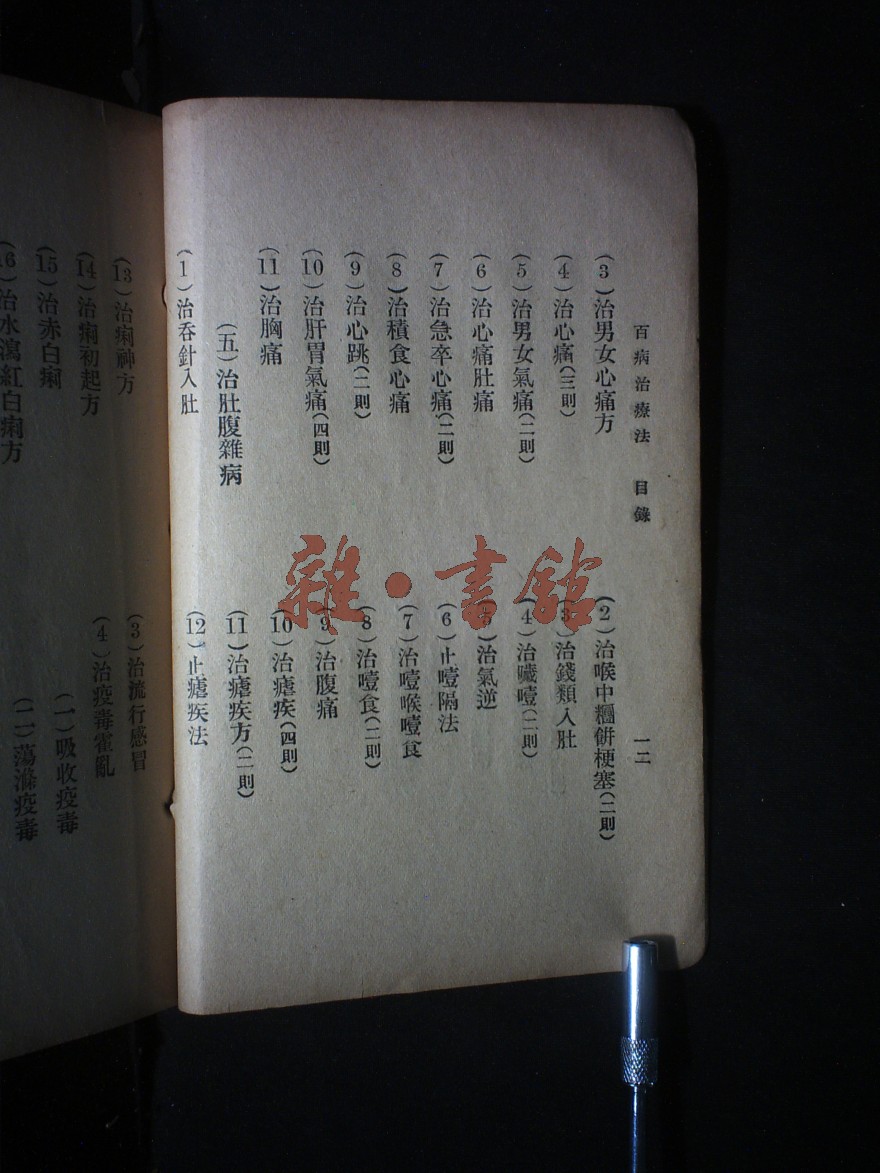 百病治療法　目錄
一二
（3）治男女心痛方
（4）治心痛（三則）
（5）治男女氣痛（二則）
（6）治心痛肚痛
（7）治急卒心痛（二則）
（8）治積食心痛
（9）治心跳（二則）
（10）治肝胃氣痛（四則）
（11）治胸痛
（五）治肚腹雜病
（1）治吞針入肚
（2）治喉中糰餅梗塞（二則）
（3）治錢類入肚
（4）治噦噎（二則）
（5）治氣逆
（6）止噎隔法
（7）治噎喉噎食
（8）治噎食（二則）
（9）治腹痛
（10）治瘧疾（四則）
（11）治瘧疾方（二則）
（12）止瘧疾法
（13）治痢神方
（14）治痢初起方
（15）治赤白痢
（16）治水瀉紅白痢方
（3）治流行感冒
（4）治疫毒霍亂
（一）吸收疫毒
（二）蕩滌疫毒
雜·書館